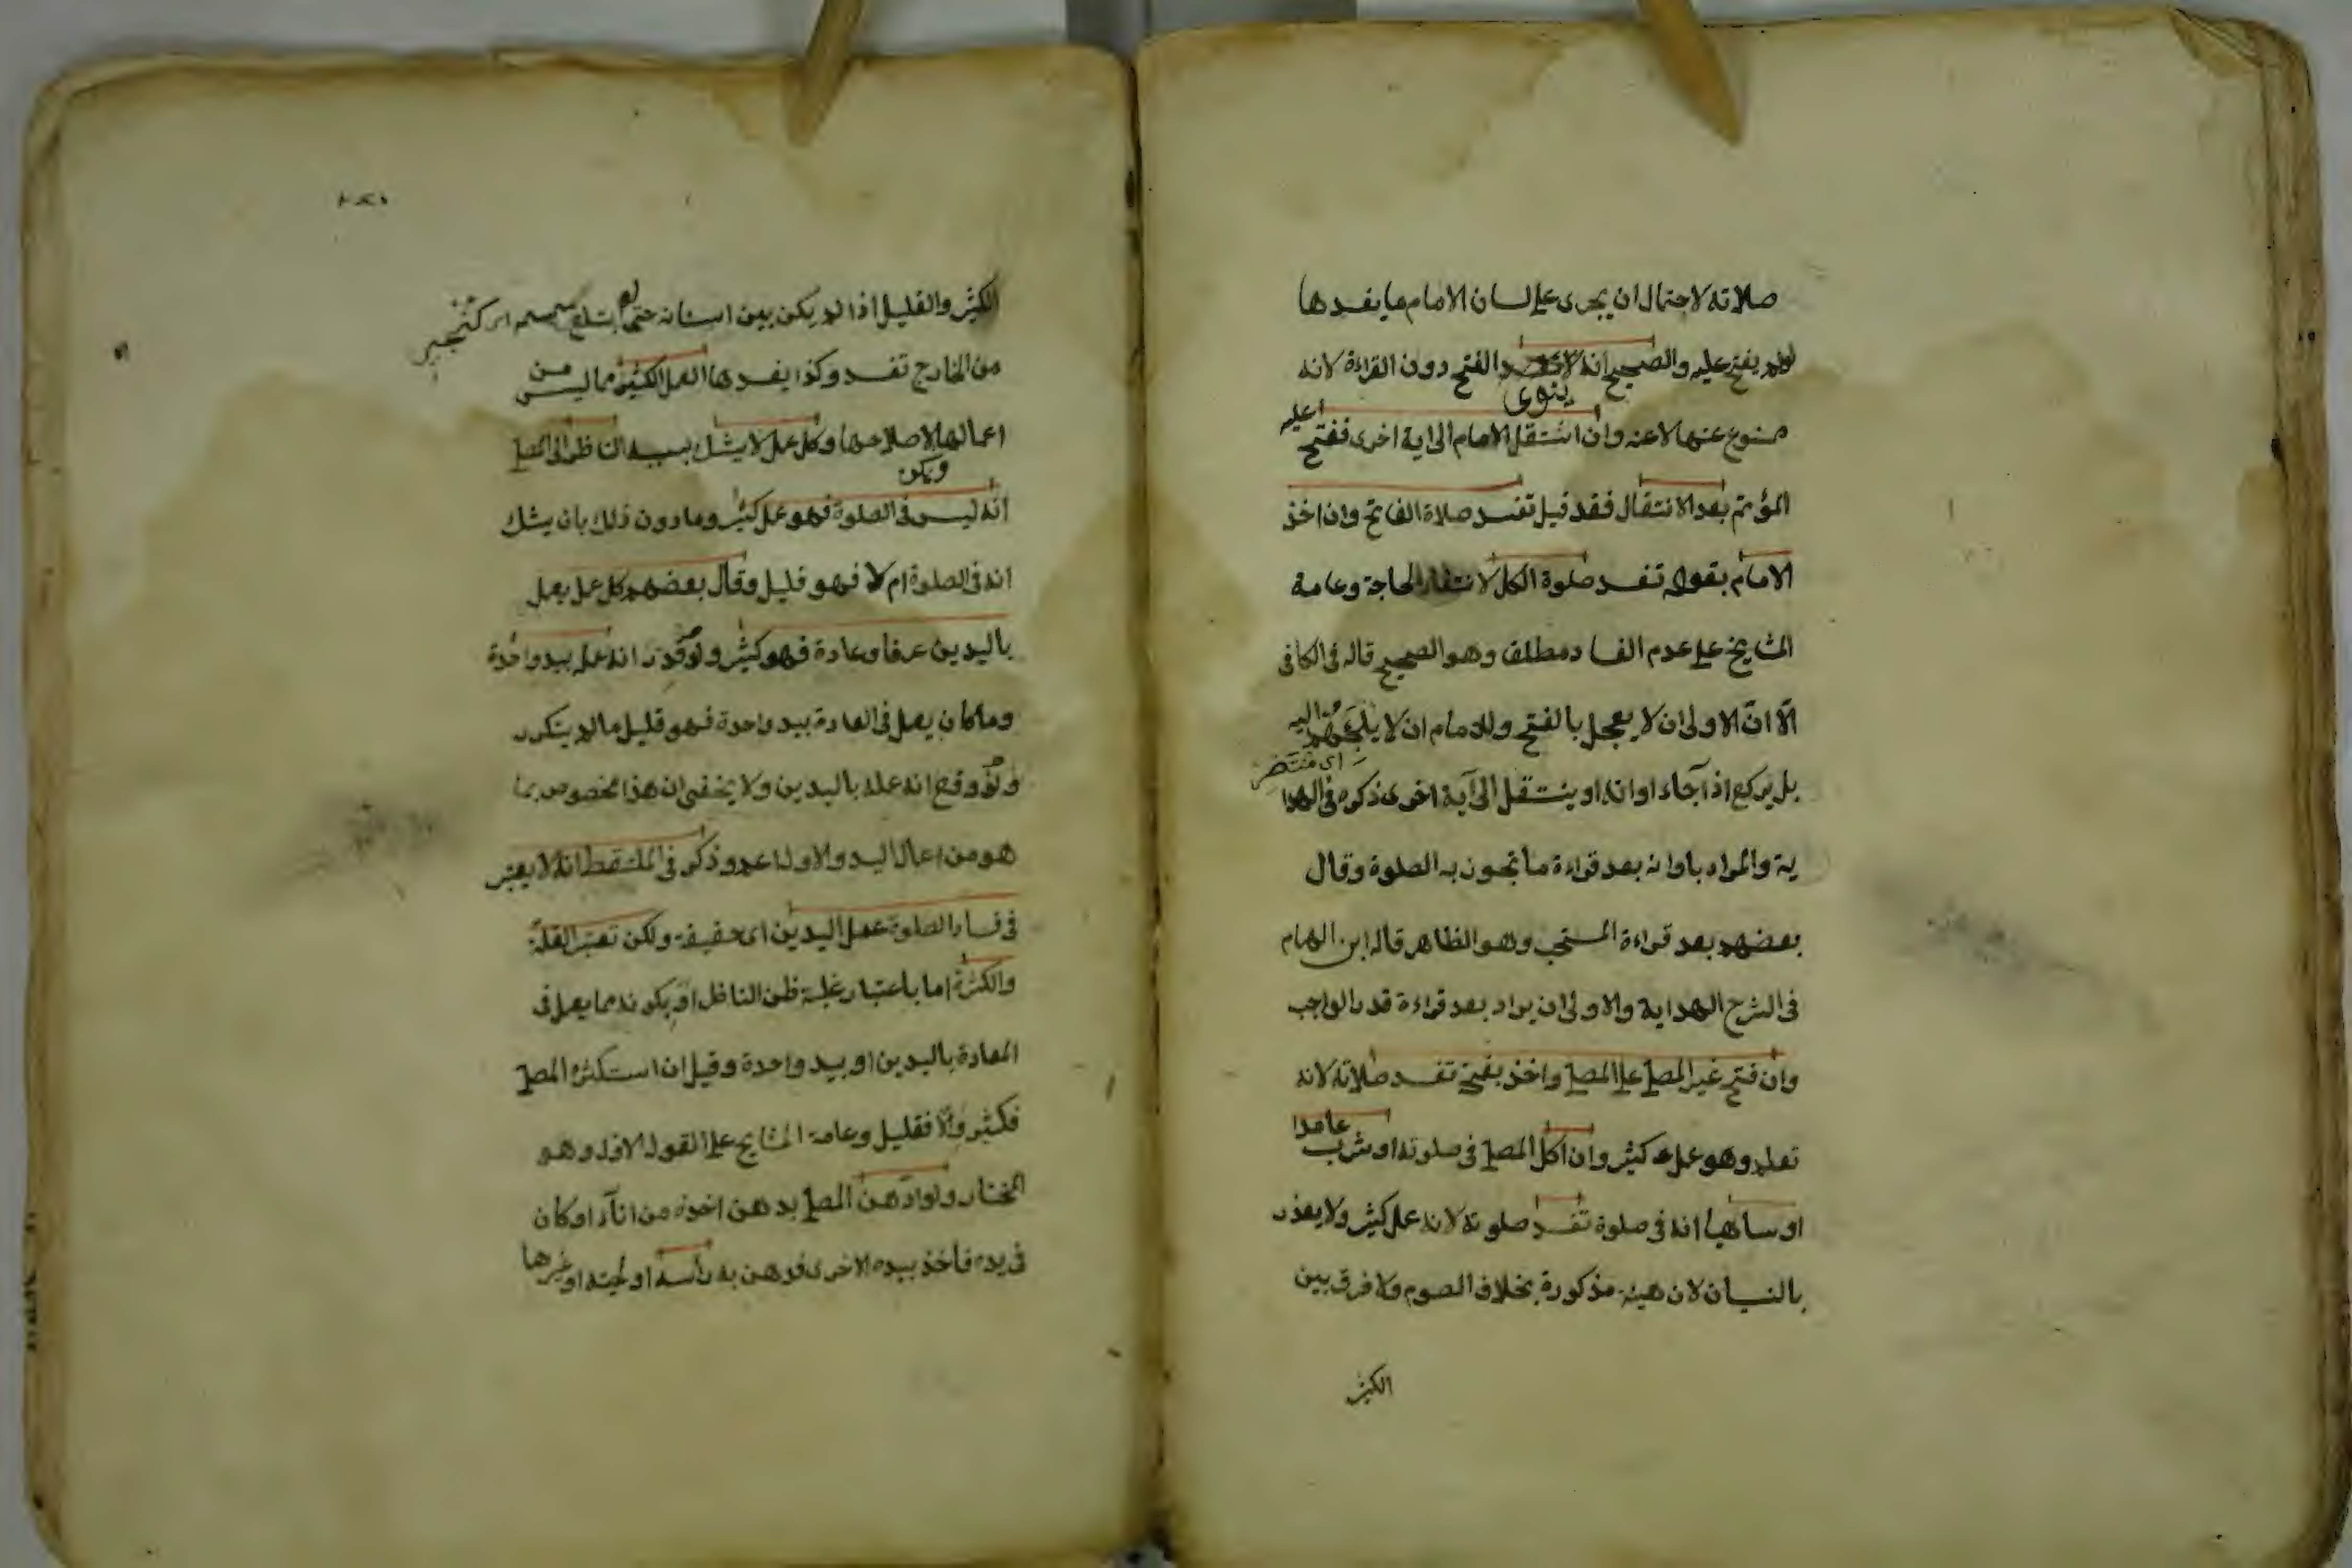 صلاته لاحتمال ان يجرى على لسان الامام ما يفسدها
لو لم يفتح عليه والصحيح انه لا الفتح دون القراءة لانه
ينوى
ممنوع عنها لا عنه وان انتقل الامام الى اية اخرى ففتح عليه
المؤتم بعد الانتقال فقد قيل تفسد صلاة الفاتح وان اخذ
الامام بقوله تفسد صلوة الكل لانتفاء الحاجة وعامة
المشايخ على عدم الفساد مطلقا وهو الصحيح قاله فى الكافى
الّا انّ الاولى ان لا يعجل بالفتح وللامام ان لا يلجئهم اليه
بل يركع اذا جاء اوانه او ينتقل الى آية اخرى ذكره فى الهدا
ية والمراد باوانه بعد قراءة ما تجوز به الصلوة وقال
بعضهم بعد قراءة المستحب وهو الظاهر قاله ابن الهمام
فى الشرح الهداية والاولى ان يراد بعد قراءة قدر الواجب
وان فتح غير المصلى على المصلى واخذ بفتحه تفسد صلاته لانه
تعلم وهو عمل كثير وان اكل المصلى فى صلوته او شرب عامدا
او ساهيا انه فى صلوة تفسد صلوته لانه عمل كثير ولا يعذر
بالنسيان لان هيئته مذكورة بخلاف الصوم ولا فرق بين
الكثير
الكثير والقليل اذا لم يكن بين اسنانه حتى لو ابتلع سمسمه
من الخارج تفسد وكذا يفسدها العمل الكثير مما ليس من
اعمالها لاصلاحها وكل عمل لا يشك بسببه الناظر الى المصلى
ويكن
انه ليس فى الصلوة فهو عمل كثير وما دون ذلك بان يشك
انه فى الصلوة ام لا فهو قليل وقال بعضهم كل عمل يعمل
باليدين عرفا وعادة فهو كثير ولو قدر انه عمله بيد واحدة
وما كان يعمل فى العادة بيد واحدة فهو قليل ما لم يتكرر
ولو وقع انه عمله باليدين ولا يخفى ان هذا مخصوص بما
هو من اعمال اليد والاول اعم وذكر فى الملتقط انه لا يعتبر
فى فساد الصلوة عمل اليدين اى حقيقة ولكن تعتبر القلّة
والكثرة اما باعتبار غلبة ظن الناظر او بكونه مما يعمل فى
العادة باليدين او بيد واحدة وقيل ان استكثره المصلى
فكثير والّا فقليل وعامة المشايخ على القول الاول وهو
المختار ولو ادّهن المصلى بدهن اخذه من اناء او كان
فى يده فاخذ بيده الاخرى فدهن به رأسه او لحيته او غيرها